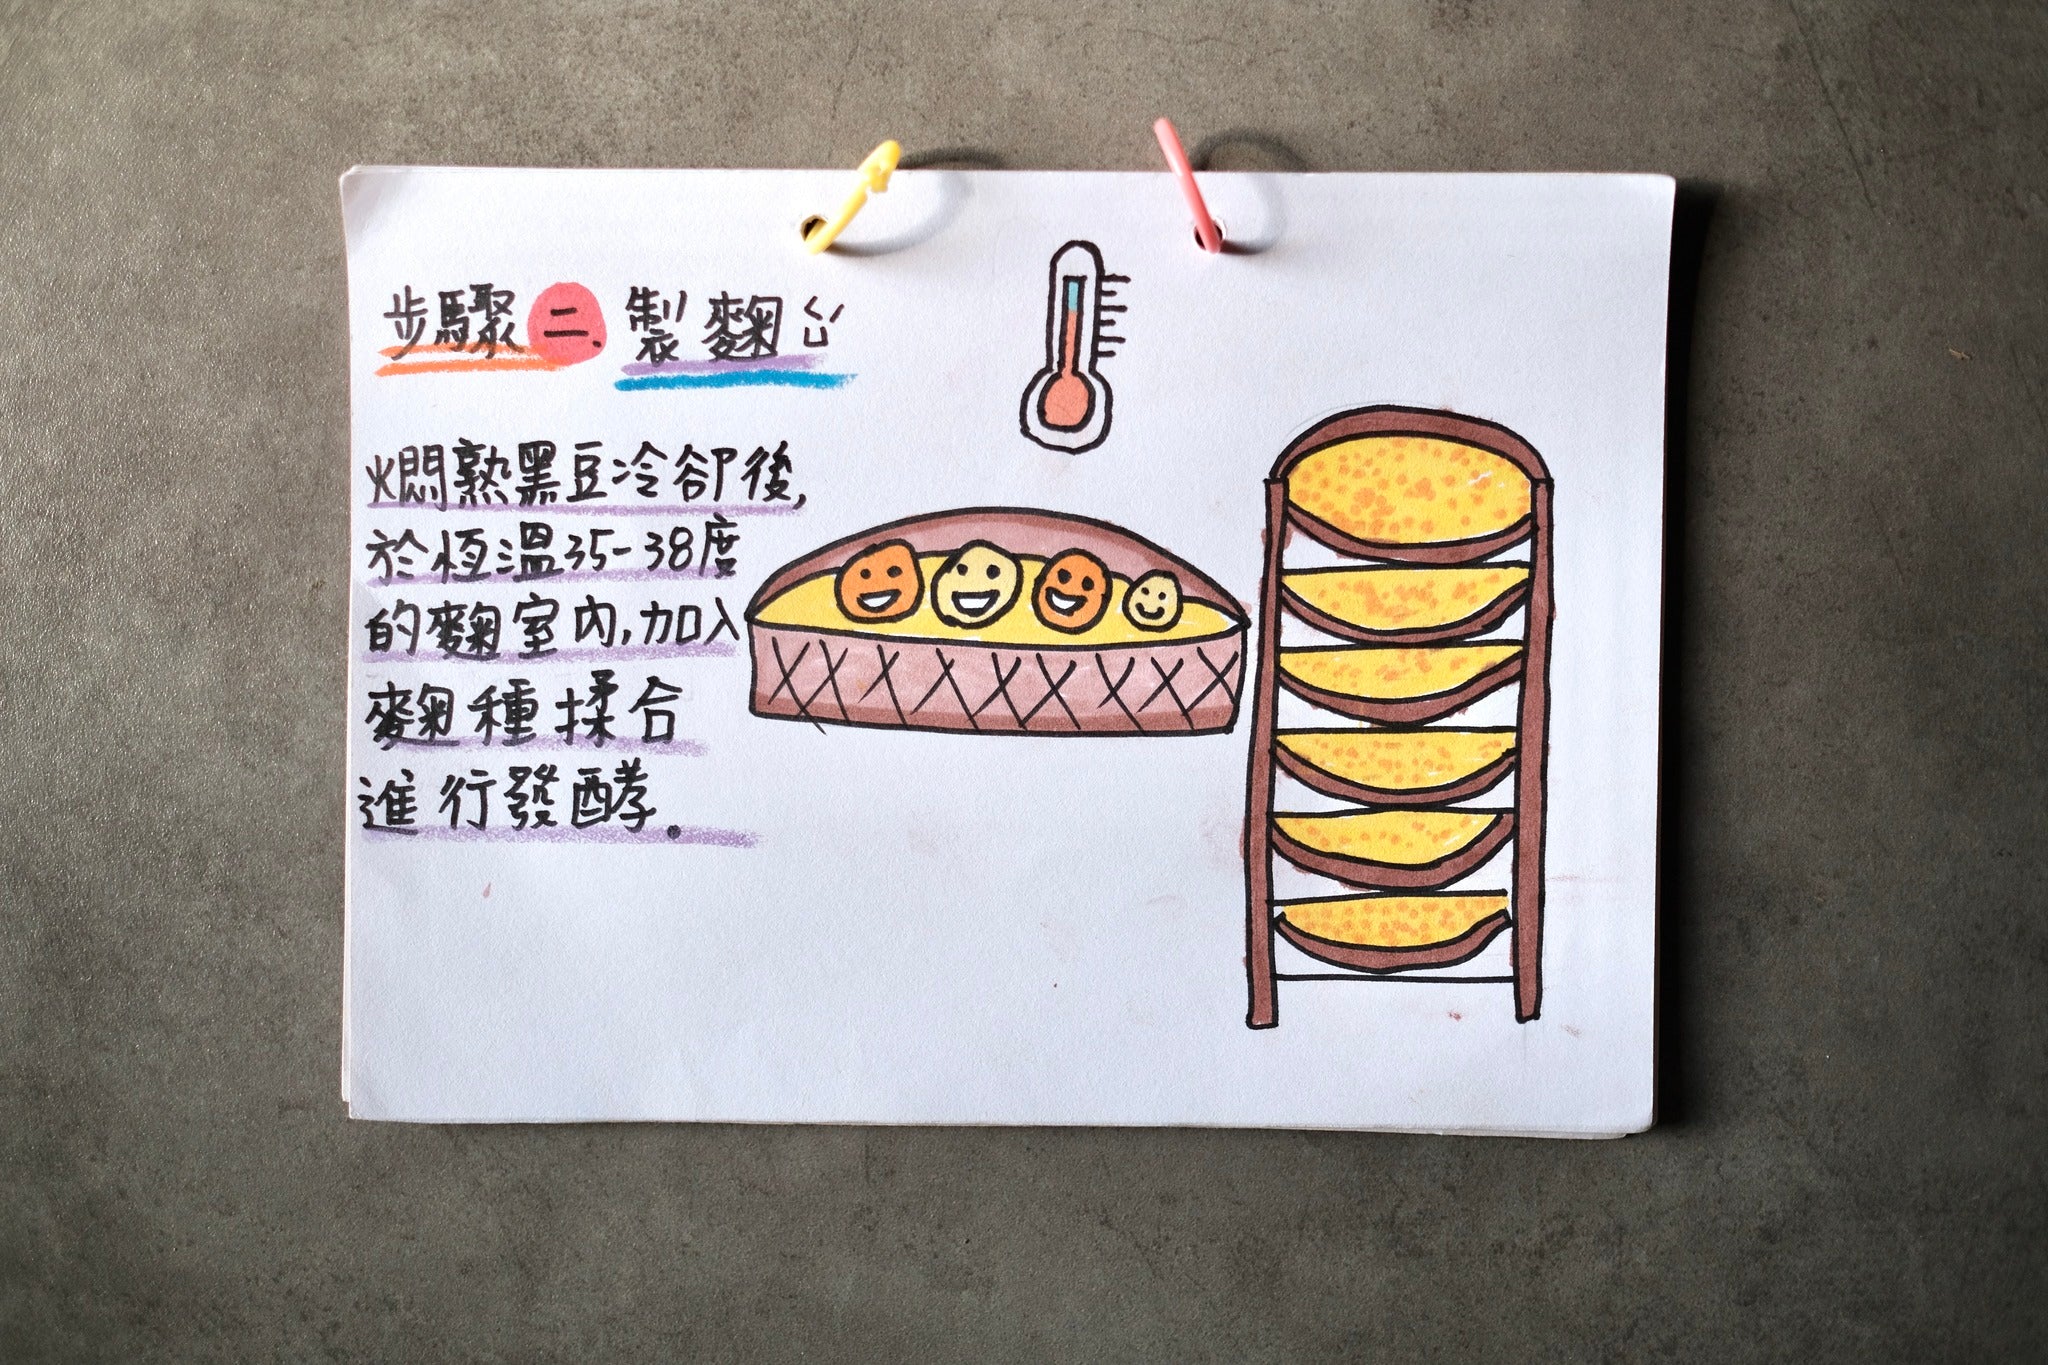 步驟二、製麴ㄑㄩˊ
燜熟黑豆冷卻後,
於恆溫35-38度
的麴室內,加入
麴種揉合
進行發酵.